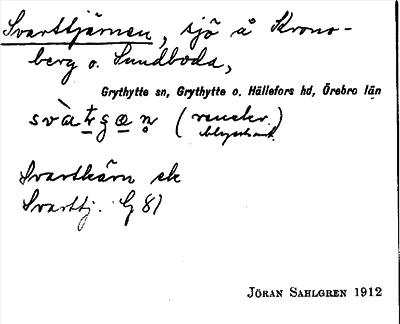 Svarttjärnen, sjö å Krono-
berg o. Sundboda,
Grythytte sn, Grythytte o. Hällefors hd, Örebro län
Svartkärn ek
Svarttj. G 81
JÖRAN SAHLGREN 1912